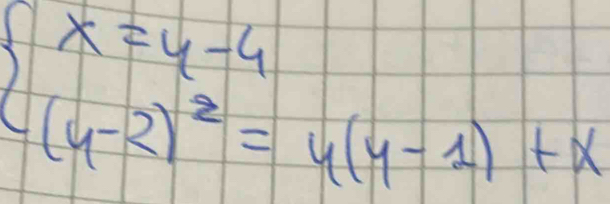 x = y - 4
(y-2)² = y(y-1) + x